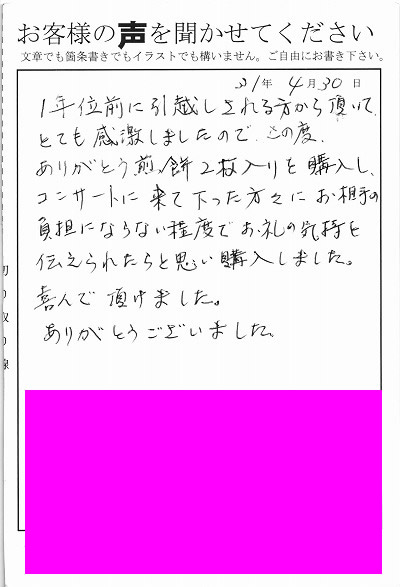 お客様の声を聞かせてください
文章でも箇条書きでもイラストでも構いません。ご自由にお書き下さい。
21年 4月30日
1年位前に引越しされる方から頂いて、
とても感激しましたので、この度、
ありがとう煎餅2枚入りを購入し、
コンサートに来て下った方々にお相手の
負担にならない程度でお礼の気持を
伝えられたらと思い購入しました。
喜んで頂けました。
ありがとうございました。
切り取り線